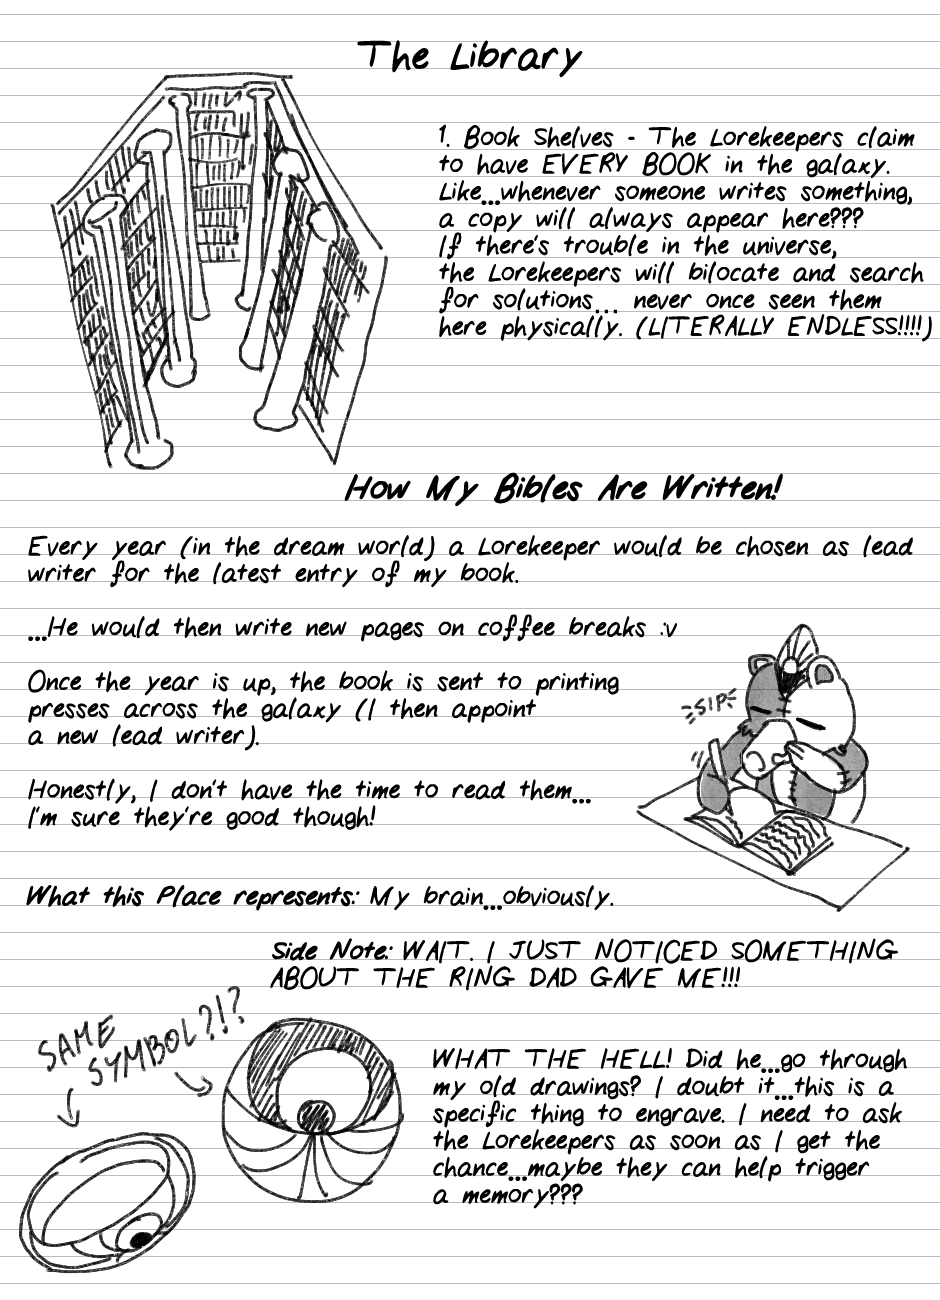 The Library
1. Book Shelves - The Lorekeepers claim
to have EVERY BOOK in the galaxy.
Like...whenever someone writes something,
a copy will always appear here???
If there's trouble in the universe,
the Lorekeepers will bilocate and search
for solutions... never once seen them
here physically. (LITERALLY ENDLESS!!!!)
How My Bibles Are Written!
Every year (in the dream world) a Lorekeeper would be chosen as lead
writer for the latest entry of my book.
...He would then write new pages on coffee breaks :v
Once the year is up, the book is sent to printing
presses across the galaxy (I then appoint
a new lead writer).
SIP
Honestly, I don't have the time to read them...
I'm sure they're good though!
What this Place represents: My brain...obviously.
Side Note: WAIT. I JUST NOTICED SOMETHING
ABOUT THE RING DAD GAVE ME!!!
SAME
SYMBOL?!?
WHAT THE HELL! Did he...go through
my old drawings? I doubt it...this is a
specific thing to engrave. I need to ask
the Lorekeepers as soon as I get the
chance...maybe they can help trigger
a memory???